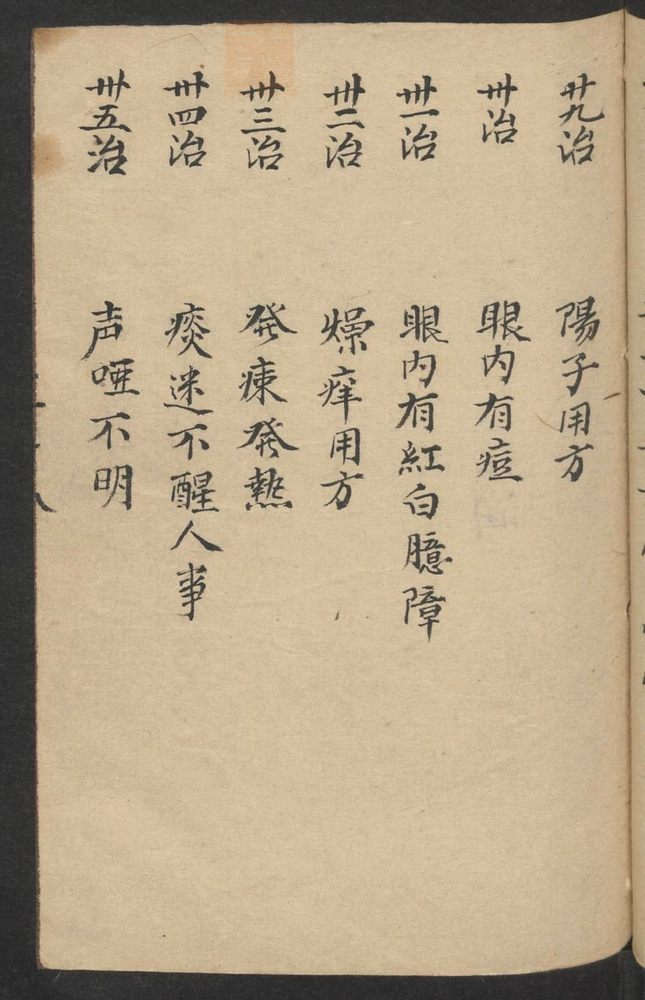 廿九治 陽子用方
卅治 眼内有痘
卅一治 眼内有紅白臆障
卅二治 燥痒用方
卅三治 発痳発熱
卅四治 痰迷不醒人事
卅五治 声哑不明